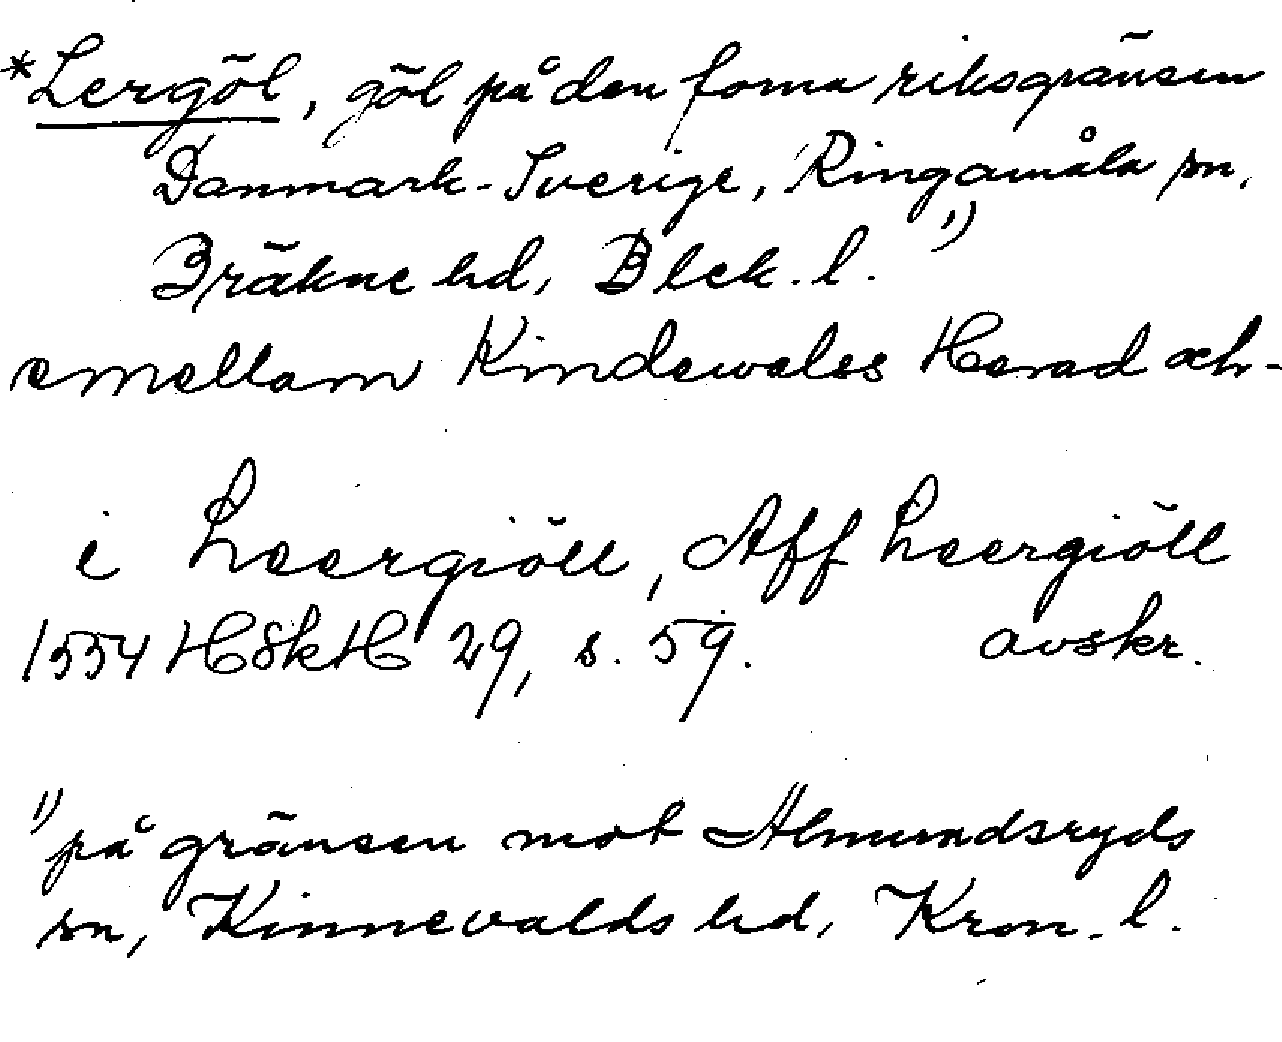 *Lergöl, göl på den forna riksgränsen
Danmark-Sverige, Ringamåla sn,
Bräkne hd, Blek. l. 1)
emellam Kindewales Herad och-
i Leergiöll, Aff Leergiöll
1554 HSkH 29, s. 59. avskr.
1) på gränsen mot Almundsryds
sn, Kinnevalds hd, Kron. l.